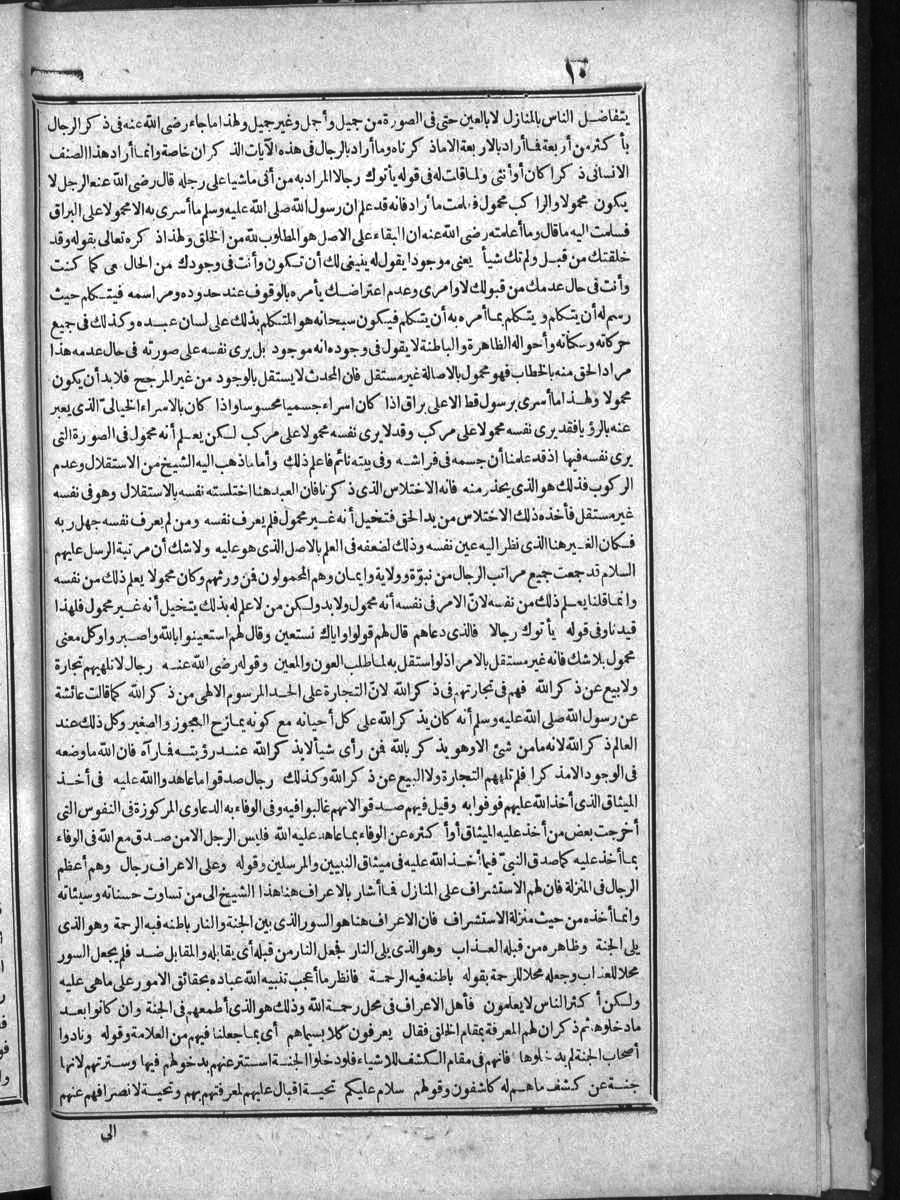 ١٠
يتفاضل الناس بالمنازل لا بالعين حتى فى الصورة من جميل وأجمل وغير جميل ولهذا ما جاء رضى الله عنه فى ذكر الرجال
بأكثر من أربعة فما أراد بالاربعة الا ما ذكرناه وما أراد بالرجال فى هذه الآيات الذكران خاصة وانما أراد هذا الصنف
الانسانى ذكرا كان أو أنثى ولما قلت له فى قوله يأتوك رجالا المراد به من أتى ماشيا على رجله قال رضى الله عنه الرجل لا
يكون محمولا والراكب محمول فعلمت ما أراد فانه قد علم ان رسول الله صلى الله عليه وسلم ما أسرى به الا محمولا على البراق
فسلمت اليه ما قال وما أعلمته رضى الله عنه ان البقاء على الاصل هو المطلوب لله من الخلق ولهذا ذكره تعالى بقوله وقد
خلقتك من قبل ولم تك شيأ يعنى موجودا يقول له ينبغى لك أن تكون وأنت فى وجودك من الحال معى كما كنت
وأنت فى حال عدمك من قبولك لاوامرى وعدم اعتراضك يأمره بالوقوف عند حدوده ومراسمه فيتكلم حيث
رسم له أن يتكلم ويتكلم بما أمره به أن يتكلم فيكون سبحانه هو المتكلم بذلك على لسان عبده وكذلك فى جميع
حركاته وسكناته وأحواله الظاهرة والباطنة لا يقول فى وجوده انه موجود بل يرى نفسه على صورته فى حال عدمه هذا
مراد الحق منه بالخطاب فهو محمول بالاصالة غير مستقل فان المحدث لا يستقل بالوجود من غير المرجح فلا بد أن يكون
محمولا ولهذا ما أسرى برسول قط الا على براق اذا كان اسراء جسميا محسوسا واذا كان بالاسراء الخيالىّ الذى يعبر
عنه بالرؤيا فقد يرى نفسه محمولا على مركب وقد لا يرى نفسه محمولا على مركب لكن يعلم أنه محمول فى الصورة التى
يرى نفسه فيها اذ قد علمنا أن جسمه فى فراشه وفى بيته نائم فاعلم ذلك وأما ما ذهب اليه الشيخ من الاستقلال وعدم
الركوب فذلك هو الذى يحذر منه فانه الاختلاس الذى ذكرنا فان العبد هنا اختلسته نفسه بالاستقلال وهو فى نفسه
غير مستقل فأخذه ذلك الاختلاس من يد الحق فتخيل أنه غير محمول فلم يعرف نفسه ومن لم يعرف نفسه جهل ربه
فكان الغير هنا الذى نظر اليه عين نفسه وذلك لضعفه فى العلم بالاصل الذى هو عليه ولا شك أن مرتبة الرسل عليهم
السلام قد جمعت جميع مراتب الرجال من نبوّة وولاية وايمان وهم المحمولون فمن ورثهم وكان محمولا يعلم ذلك من نفسه
وانما قلنا يعلم ذلك من نفسه لانّ الامر فى نفسه أنه محمول ولا بد ولكن من لا علم له بذلك يتخيل أنه غير محمول فلهذا
قيدنا وفى قوله يأتوك رجالا فالذى دعاهم قال لهم قولوا واياك نستعين وقال لهم استعينوا بالله واصبروا وكل معنى
محمول بلا شك فانه غير مستقل بالامر اذ لو استقل به لما طلب العون والمعين وقوله رضى الله عنه رجال لا تلهيهم تجارة
ولا بيع عن ذكر الله فهم فى تجارتهم فى ذكر الله لانّ التجارة على الحد المرسوم الالهى من ذكر الله كما قالت عائشة
عن رسول الله صلى الله عليه وسلم أنه كان يذكر الله على كل أحيانه مع كونه يمازح العجوز والصغير وكل ذلك عند
العالم ذكر الله لانه ما من شئ الا وهو يذكر بالله فمن رأى شيأ لا يذكر الله عند رؤيته فما رآه فان الله ما وضعه
فى الوجود الا مذكرا فلم تلههم التجارة ولا البيع عن ذكر الله وكذلك رجال صدقوا ما عاهدوا الله عليه فى أخذ
الميثاق الذى أخذ الله عليهم فوفوا به وقيل فيهم صدقوا لانهم غالبوا فيه وفى الوفاء به الدعاوى المركوزة فى النفوس التى
أخرجت بعض من أخذ عليه الميثاق أو أكثره عن الوفاء بما عاهد عليه الله فليس الرجل الا من صدق مع الله فى الوفاء
بما أخذ عليه كما صدق النبىّ فيما أخذ الله عليه فى ميثاق النبيين والمرسلين وقوله وعلى الاعراف رجال وهم أعظم
الرجال فى المنزلة فان لهم الاستشراف على المنازل فما أشار بالاعراف هنا هذا الشيخ الى من تساوت حسناته وسيئاته
وانما أخذه من حيث منزلة الاستشراف فان الاعراف هنا هو السور الذى بين الجنة والنار باطنه فيه الرحمة وهو الذى
يلى الجنة وظاهره من قبله العذاب وهو الذى يلى النار فجعل النار من قبله أى يقابله والمقابل ضد فلم يجعل السور
محلا للعذاب وجعله محلا للرحمة بقوله باطنه فيه الرحمة فانظر ما أعجب تنبيه الله عباده بحقائق الامور على ما هى عليه
ولكن أكثر الناس لا يعلمون فأهل الاعراف فى محل رحمة الله وذلك هو الذى أطمعهم فى الجنة وان كانوا بعد
ما دخلوها ثم ذكر ان لهم المعرفة بمقام الخلق فقال يعرفون كلا بسيماهم أى بما جعلنا فيهم من العلامة وقوله ونادوا
أصحاب الجنة لم يدخلوها فانهم فى مقام الكشف للاشياء فلو دخلوا الجنة استتر عنهم بدخولهم فيها وسترتهم لانها
جنة عن كشف ما هم له كاشفون وقولهم سلام عليكم تحية اقبال عليهم لمعرفتهم بهم وتحية لانصرافهم عنهم
الى